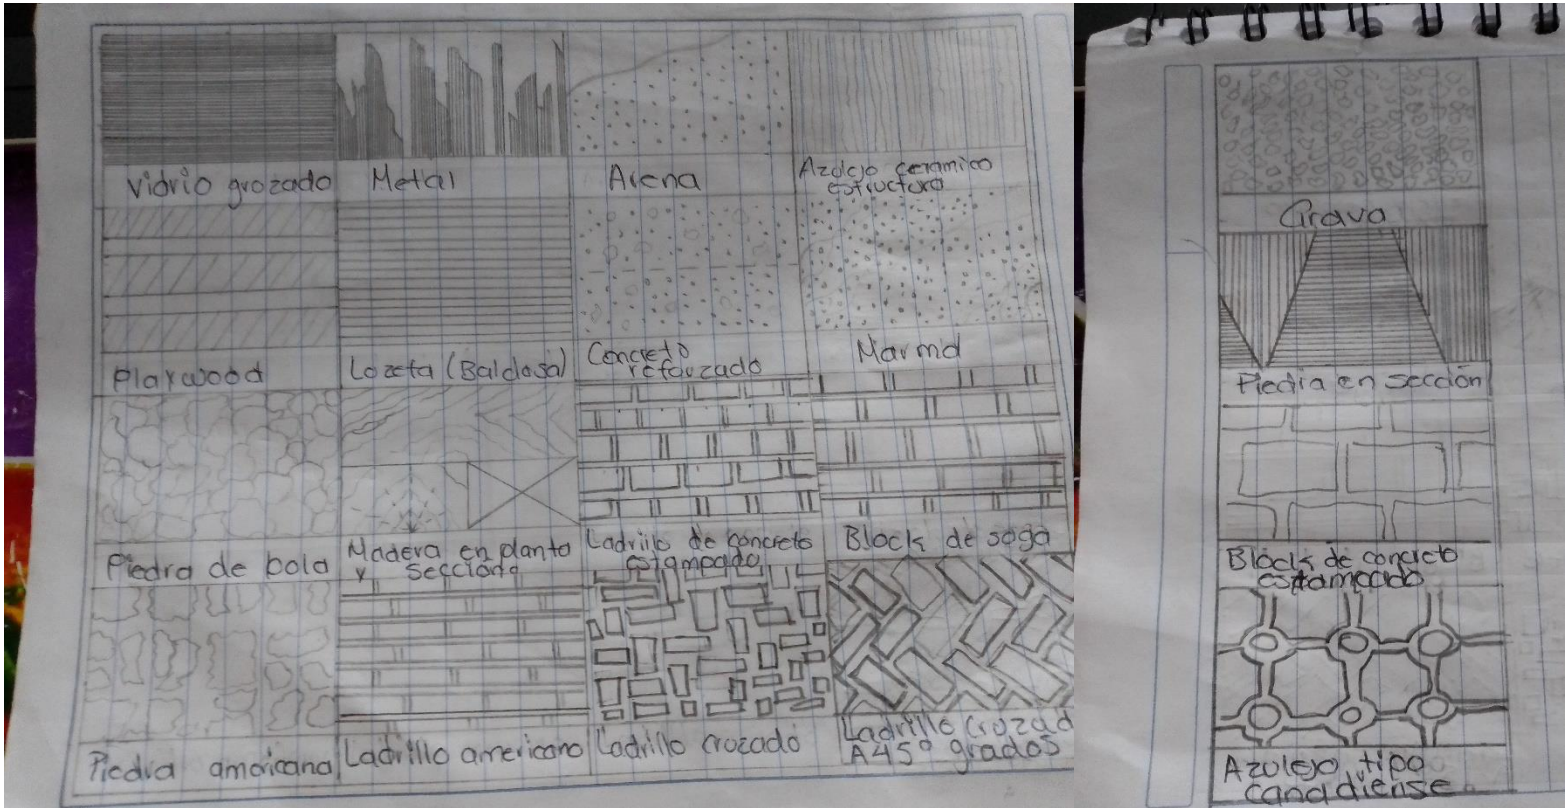 Vidrio grozado
Metal
Arena
Azolejo ceramico
estructura
Playwood
Lozeta (Baldosa)
Concreto
reforzado
Marmol
Piedra de bola
Madera en planta
y secciona
Ladrillo de concreto
estampado
Block de soga
Piedra americana
Ladrillo americano
Ladrillo crozado
Ladrillo crozad
A 45° grados
Grava
Piedra en sección
Block de concreto
estampado
Azolejo tipo
canadiense